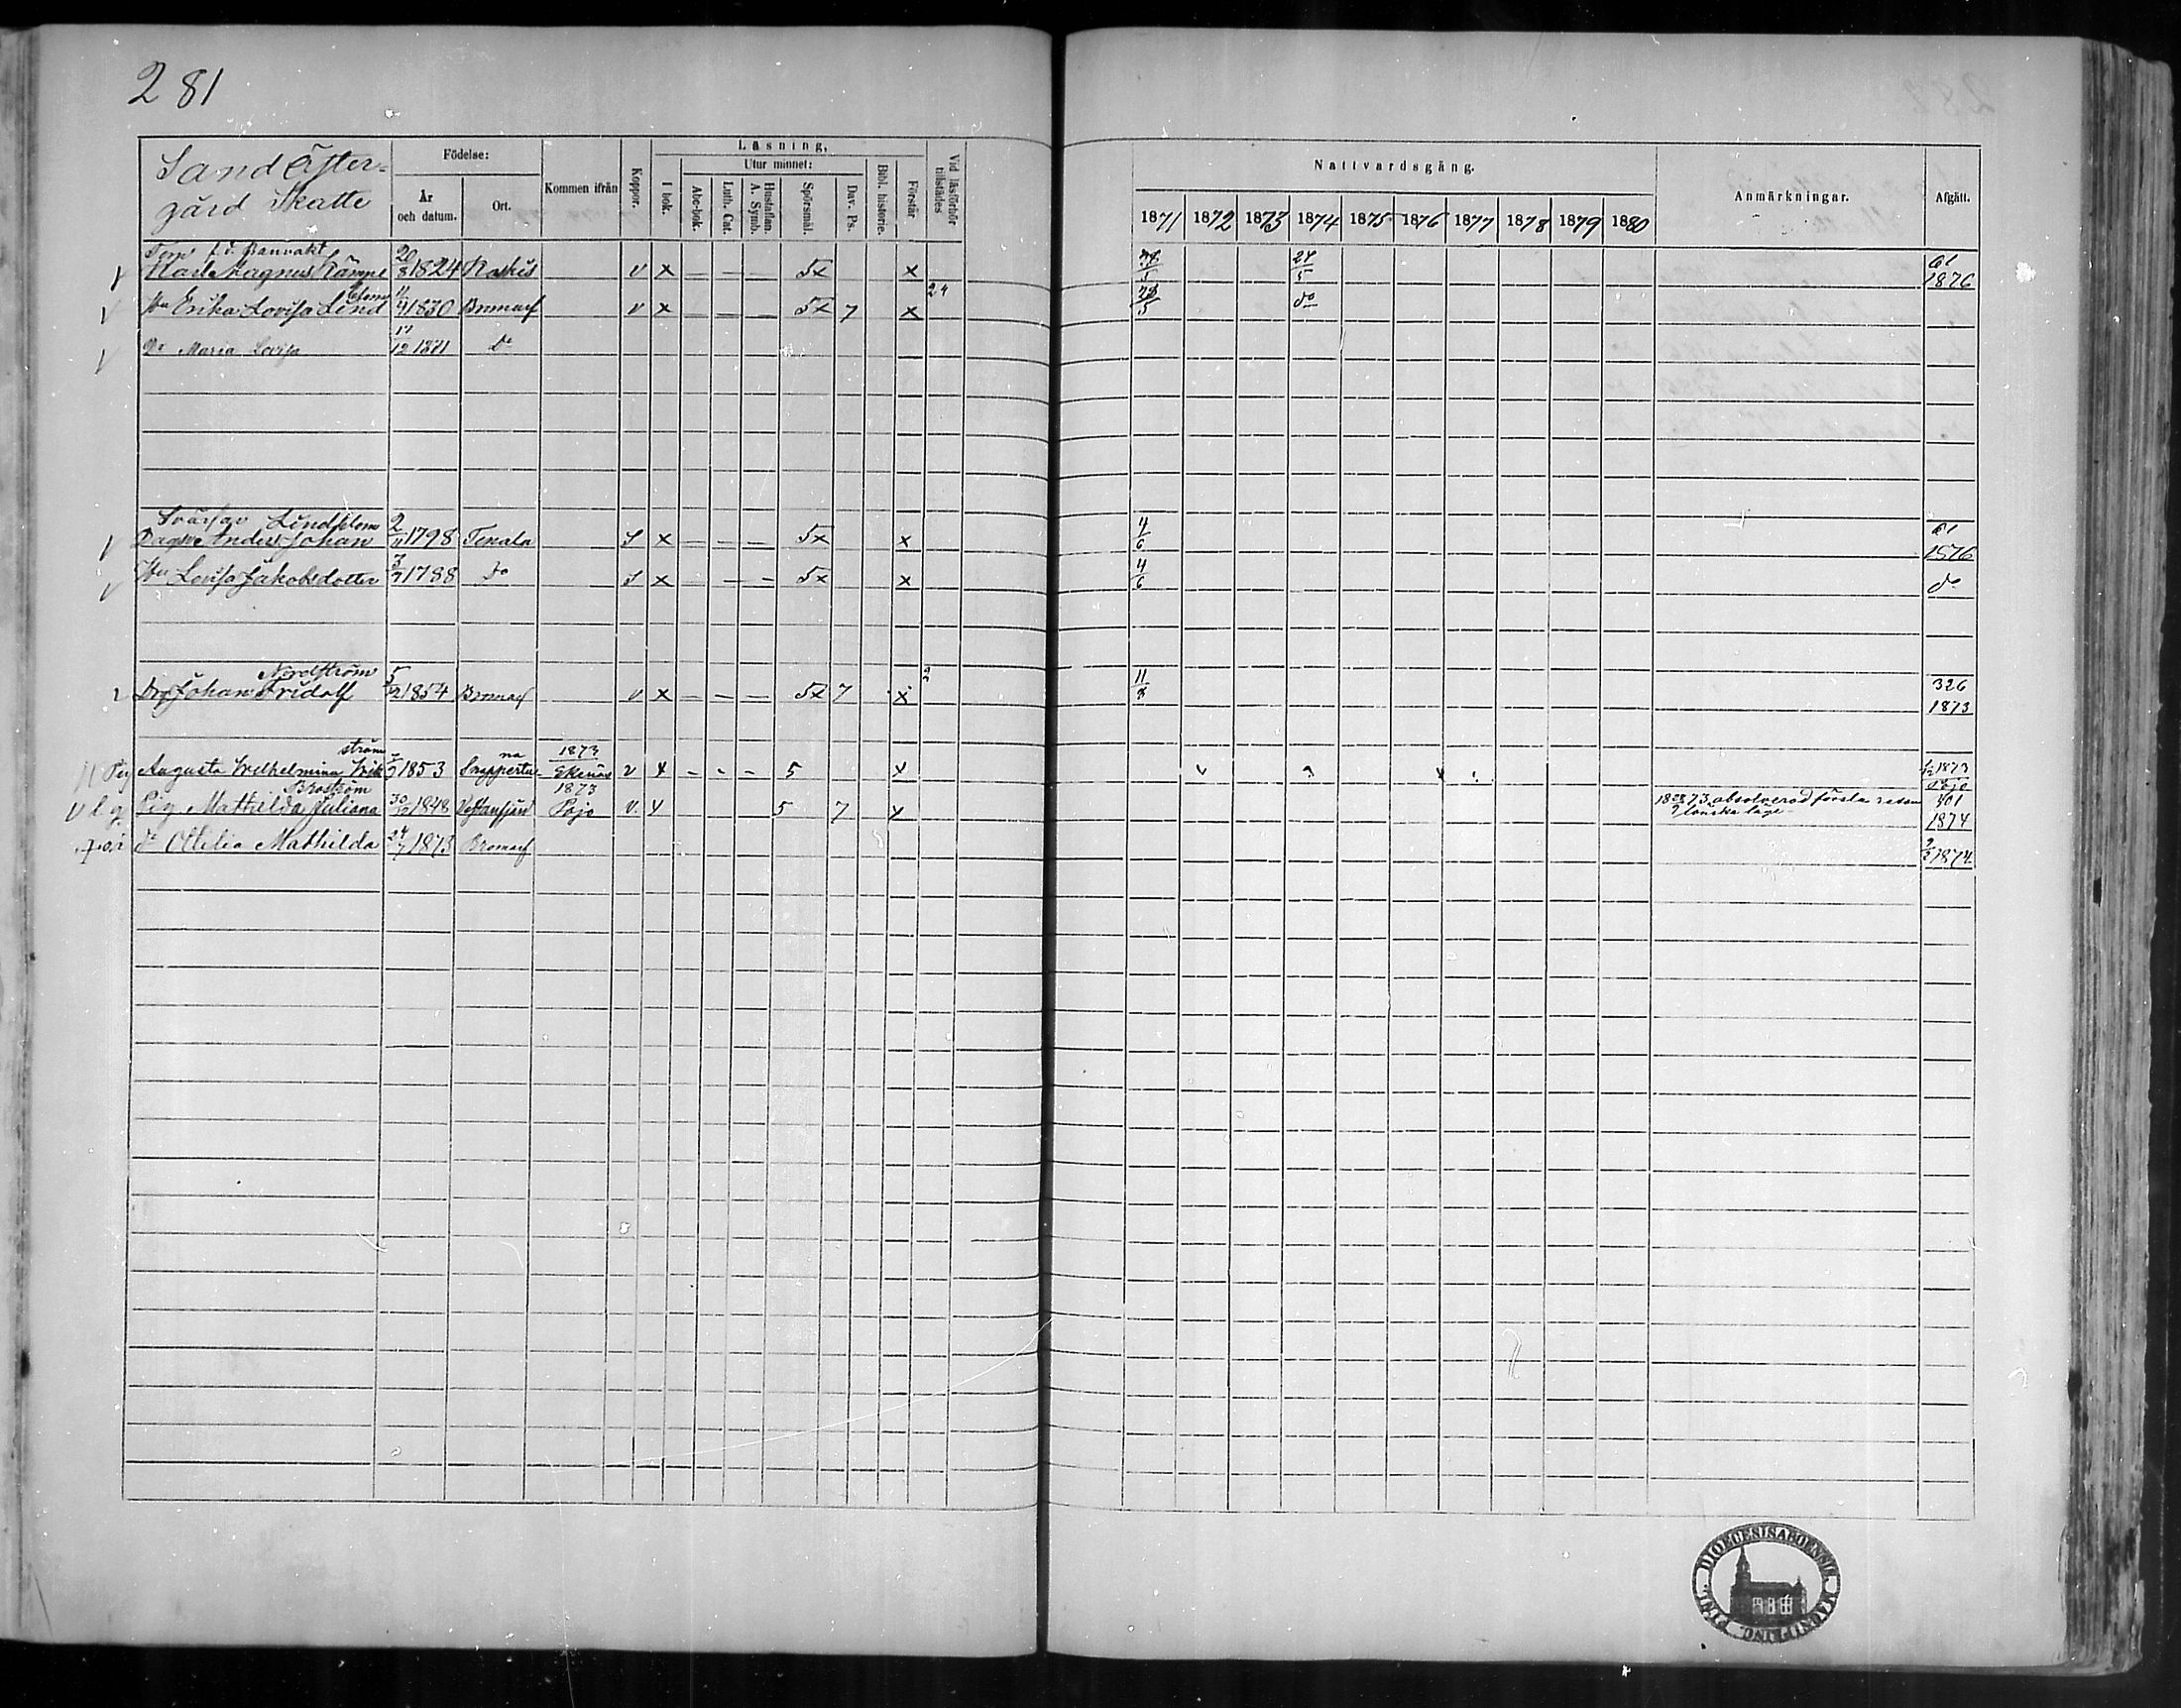 281
Sand Öfter-
gård Skatte
Födelse:
År
och datum.
Ort.
Kommen ifrån
Koppor.
Läsning,
I bok.
Utur minnet:
Abc-bok.
Luth. Cat.
Hustaflan.
A. Symb.
Spörsmål.
Dav. Ps.
Bibl. historie.
Förstår
Vid läsförhör
tillstädes
Nattvardsgång.
1871 1872 1873 1874 1875 1876 1877 1878 1879 1880
Anmärkningar.
Afgått.
Banvakt
Karl Magnus Kämpe 20/8 1824 Koskis v x — — — 5x x 24/5 61 1876
Hu Erika Lovisa Lind 1830 Bromarf v x — — — 5x 7 x 24 do
Dr Maria Lovisa 17/12 1871 do
Svärfar Lindblom
Anders Johan 2/11 1798 Tenala S x — — — 5x x 4/6 61 1876
Hu Lovisa Jakobsdotter 3/7 1788 do S x — — — 5x x 4/6 do
Nordström
Drg Johan Fridolf 5/12 1854 Bromarf v x — — — 5x 7 x 2 326 1873
ström
Pig Augusta Wilhelmina Wik 1853 Snappertuna 1873 Ekenäs v x - - - 5 x 1/12 1873 Pojo
Broström
Pig Mathilda Juliana 30/10 1848 Vestanfjärd 1873 Pojo v. x 5 7 x 1873 absolverad första resan lönska läge 401 1874
dr Ottilia Mathilda 24/7 1873 Bromarf 1874.
DIOECESIS ABOENSIS